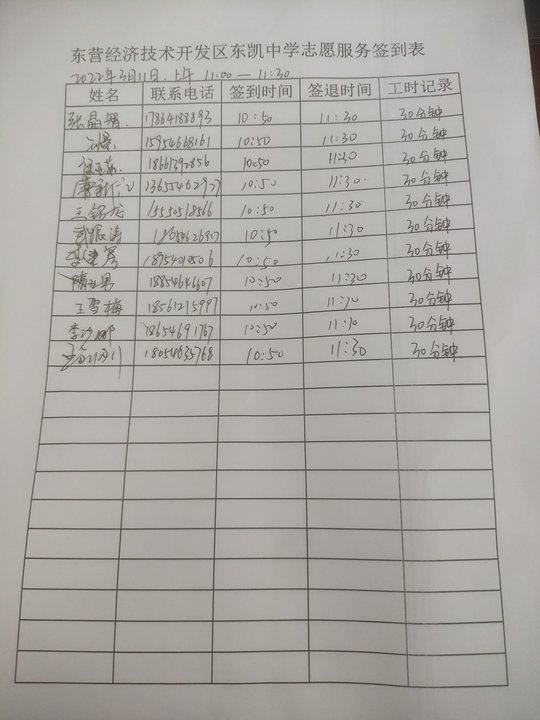 东营经济技术开发区东凯中学志愿服务签到表
2022年3月11日.上午 11:00—11:30
姓名 联系电话 签到时间 签退时间 工时记录
17864188893 10:50 11:30 30分钟
15954668161 10:50 11:30 30分钟
18661392856 10:50 11:30 30分钟
13655462927 10:50 11:30 30分钟
王铭龙 15550518566 10:50 11:30 30分钟
武振涛 10:50 11:30 30分钟
10:50 11:30 30分钟
18854646607 10:50 11:30 30分钟
王雪梅 18561215997 10:50 11:30 30分钟
李沙娜 18654691767 10:50 11:30 30分钟
18054635768 10:50 11:30 30分钟